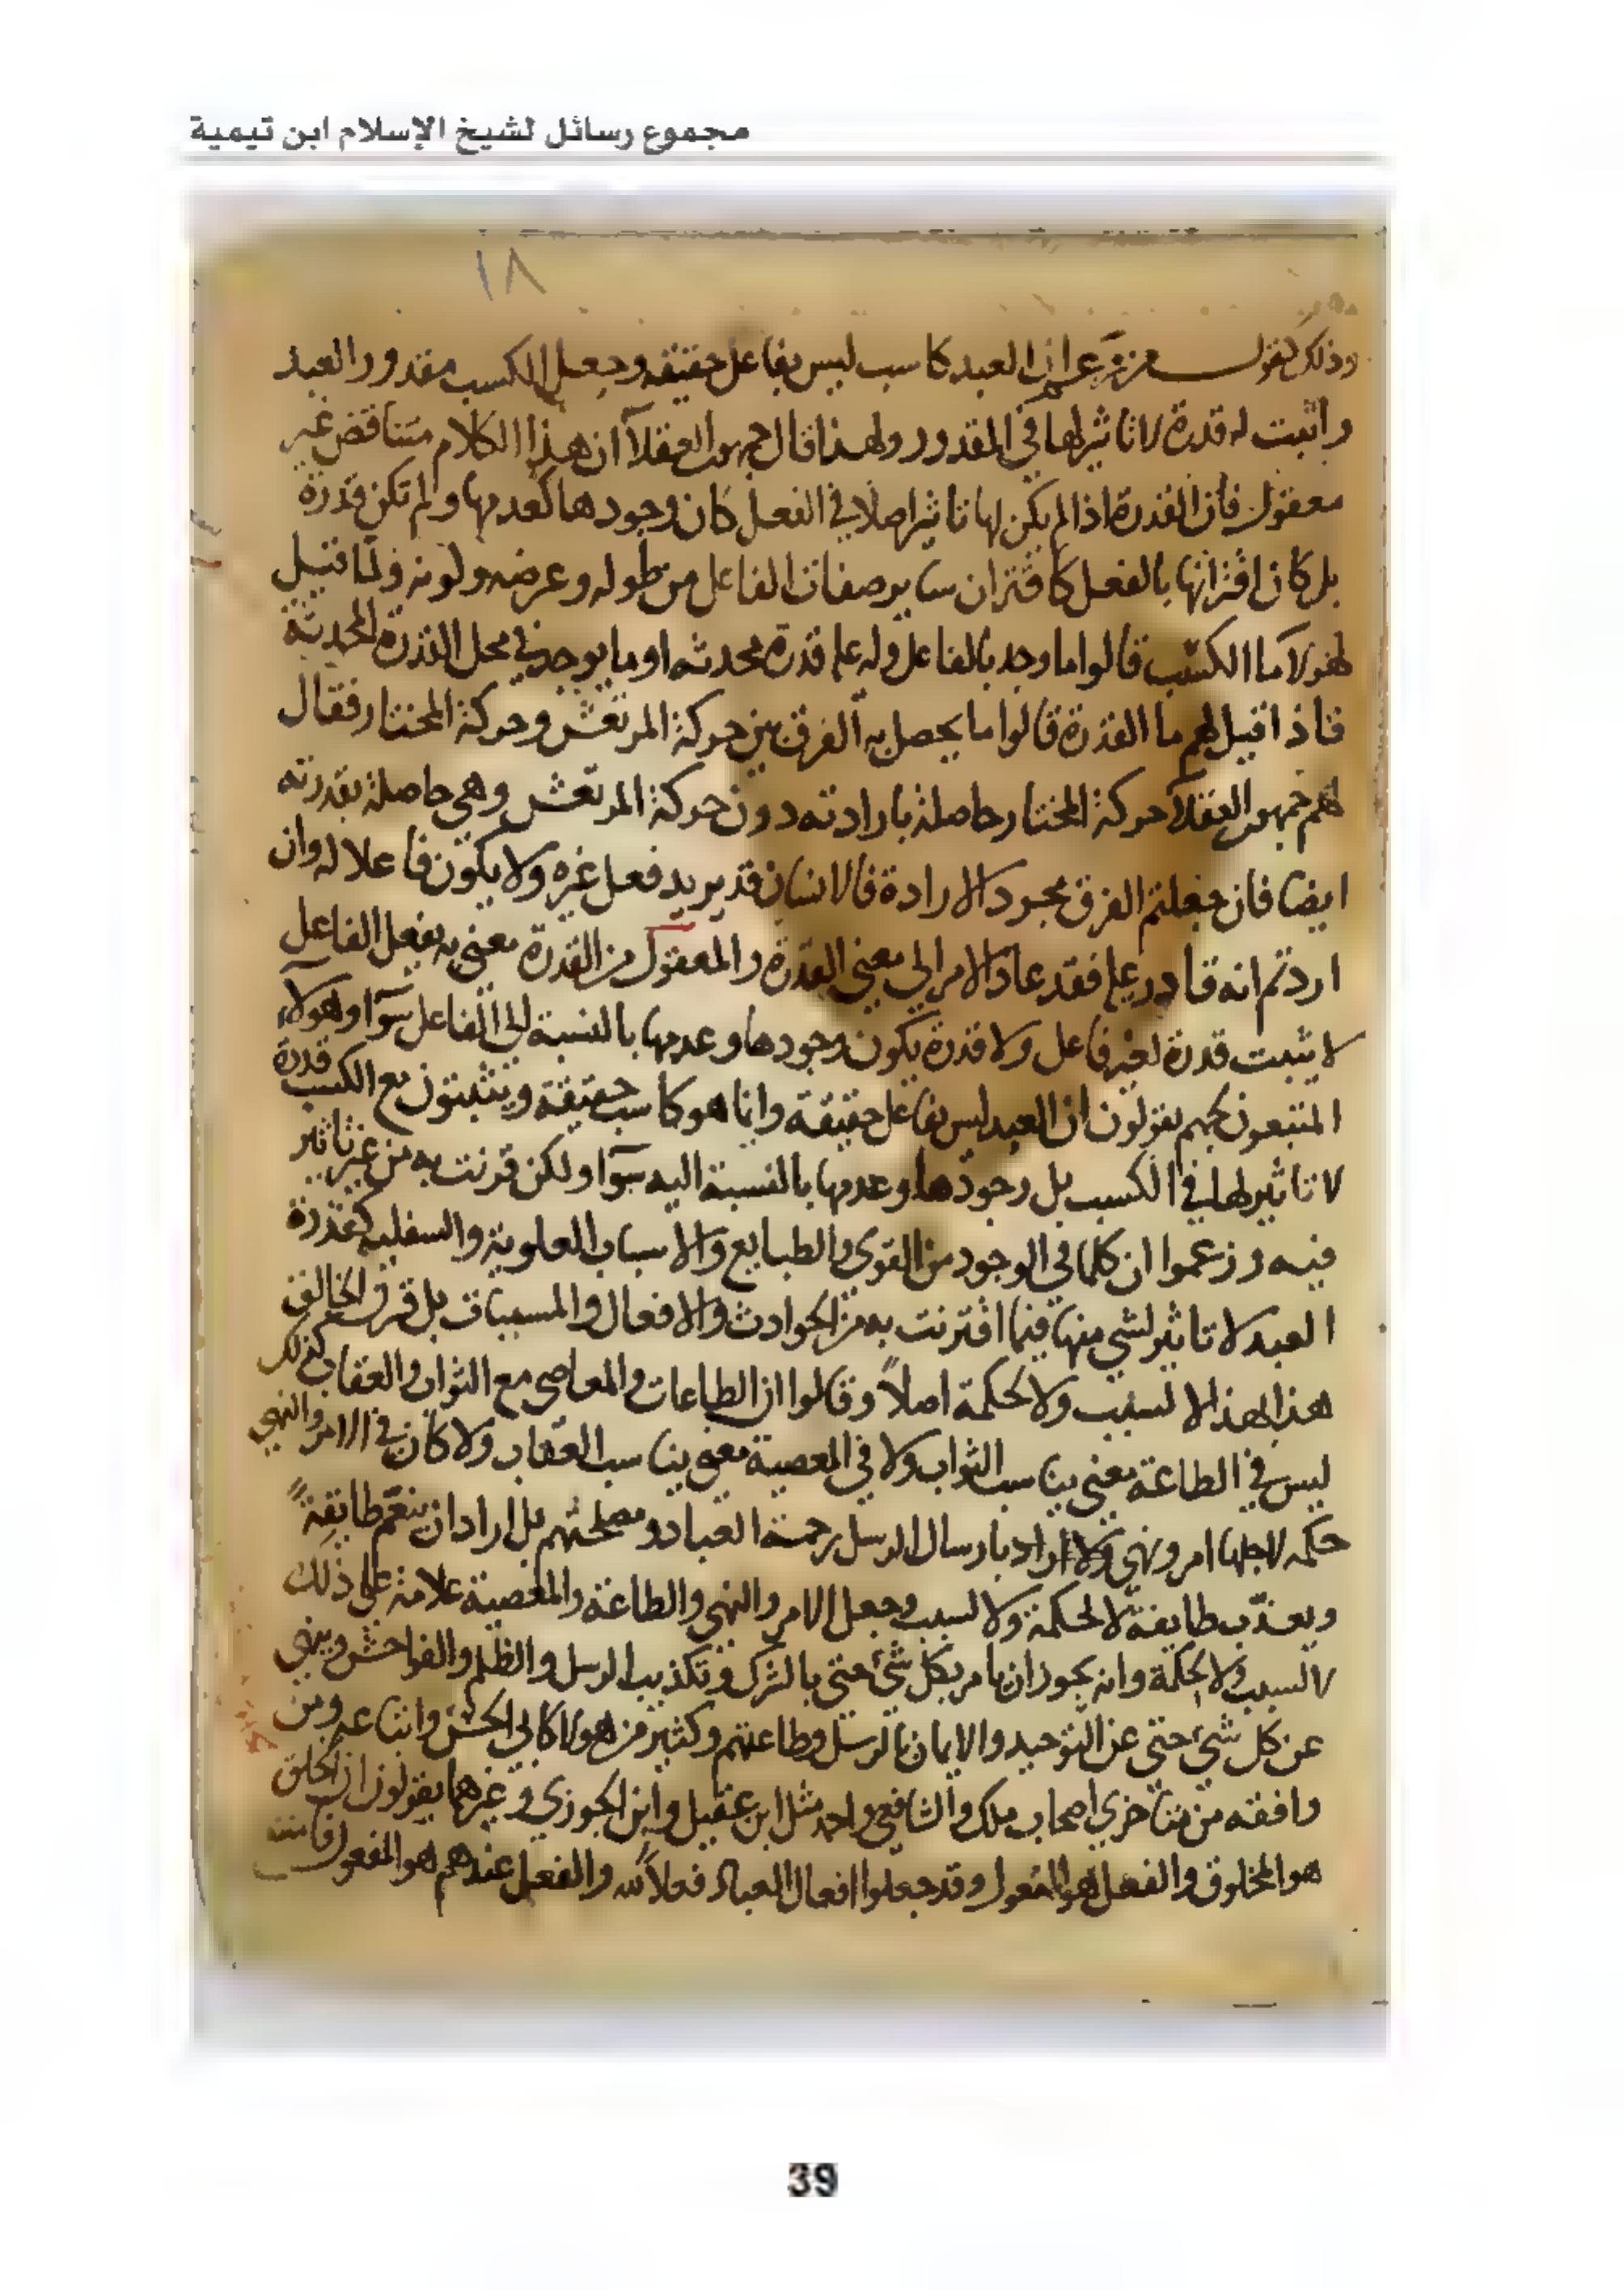 مجموع رسائل لشيخ الإسلام ابن تيمية
١٨
وذلك كقول من زعم ان العبد كاسب ليس بفاعل حقيقه وجعل الكسب مقدور العبد
واثبت له قدرة لا تاثير لها في المقدور ولهذا قال جمهور العقلآ ان هذا الكلام متناقض غير
معقول فان القدرة اذا لم يكن لها تاثير اصلا في الفعل كان وجودها كعدمها ولم تكن قدرة
بل كان اقترانها بالفعل كاقتران ساير صفات الفاعل من طوله وعرضه ولونه ولما قيل
لهولآ ما الكسب قالوا ما وجد بالفاعل وله عليه قدرة محدثه او ما يوجد في محل القدرة المحدثة
فاذا قيل لهم ما القدرة قالوا ما يحصل به الفرق بين حركة المرتعش وحركة المختار فقال
لهم جمهور العقلآ حركة المختار حاصلة بارادته دون حركة المرتعش وهي حاصلة بقدرته
ايضا فان جعلتم الفرق مجرد الارادة فالانسان قد يريد فعل غيره ولا يكون فاعلا له وان
اردتم انه قادر عليه فقد عاد الامر الى معنى القدرة والمعقول من القدرة معنى به يفعل الفاعل
لا يثبت قدرة لغير فاعل ولا قدرة يكون وجودها وعدمها بالنسبة الى الفاعل سوآ وهولآء
المتبعون لجهم يقولون ان العبد ليس بفاعل حقيقة وانما هو كاسب حقيقة ويثبتون مع الكسب قدرة
لا تاثير لها في الكسب بل وجودها وعدمها بالنسبة اليه سوآ ولكن قرنت به من غير تاثير
فيه وزعموا ان كلما في الوجود من القوى والطبايع والاسباب العلوية والسفليه كقدرة
العبد لا تاثير لشي منها فيما اقترنت به من الحوادث والافعال والمسببات بل قرن الخالق
هذا بهذا لا لسبب ولا لحكمة اصلاً وقالوا ان الطاعات والمعاصي مع الثواب والعقاب كذلك
ليس في الطاعة معنى يناسب الثواب ولا في المعصية معنى يناسب العقاب ولا كان في الامر والنهي
حكمه لاجلها امر ونهى ولا اراد بارسال الرسل رحمة العباد ومصلحتهم بل اراد ان ينعم طايفةً
ويعذب طايفة لا لحكمة ولا لسبب وجعل الامر والنهي والطاعة والمعصية علامة على ذلك
لا لسبب ولا لحكمة وانه يجوز ان يامر بكل شيء حتى بالشرك وتكذيب الرسل والظلم والفواحش وينهى
عن كل شيء حتى عن التوحيد والايمان بالرسل وطاعتهم وكثير من هولاء كابي الحسن واتباعه ومن
وافقه من متاخري اصحاب ملك والشافعي واحمد مثل ابن عقيل وابن الجوزي وغيرهما يقولون ان الخلق
هو المخلوق والفعل هو المفعول وقد جعلوا افعال العباد فعلاً لله والفعل عندهم هو المفعول
39